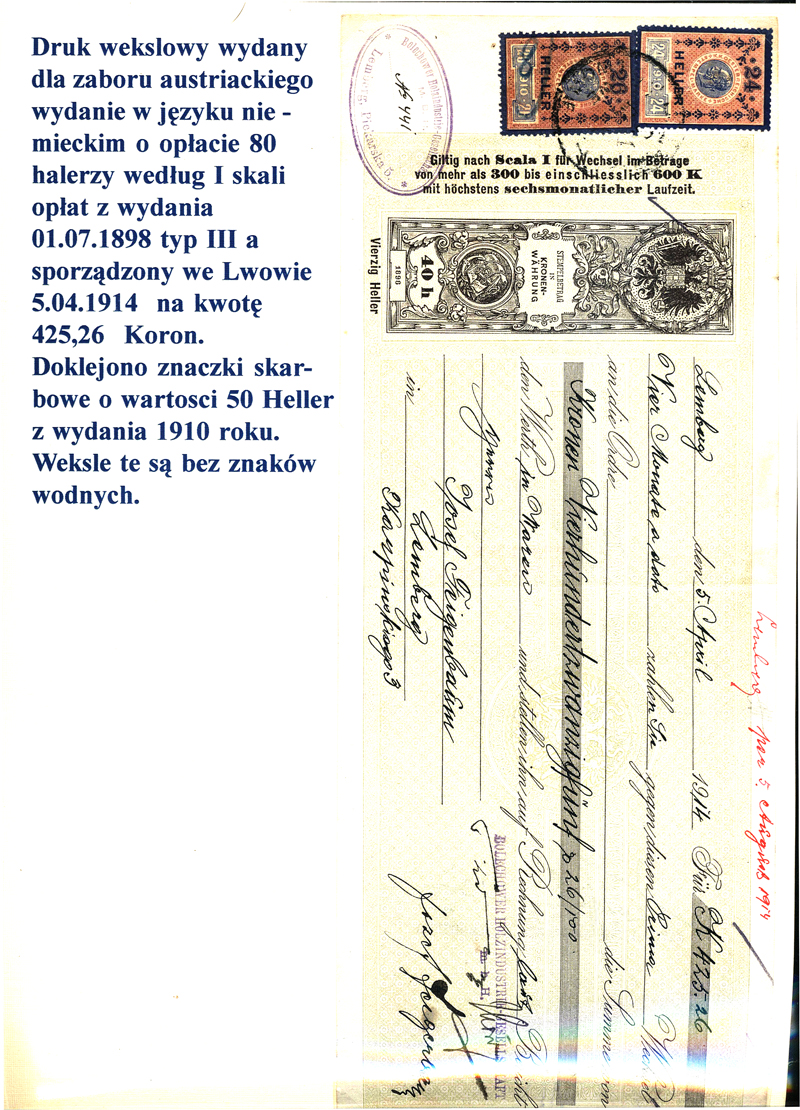 Druk wekslowy wydany
dla zaboru austriackiego
wydanie w języku nie -
mieckim o opłacie 80
halerzy według I skali
opłat z wydania
01.07.1898 typ III a
sporządzony we Lwowie
5.04.1914 na kwotę
425,26 Koron.
Doklejono znaczki skar-
bowe o wartosci 50 Heller
z wydania 1910 roku.
Weksle te są bez znaków
wodnych.
Lemberg, Piekarska 5.
№ 441
HELLER
1910
HELLER
24
24 1910 24
Giltig nach Scala I für Wechsel im Betrage
von mehr als 300 bis einschliesslich 600 K
mit höchstens sechsmonatlicher Laufzeit.
Vierzig Heller
1898
40 h
STEMPELBETRAG
IN
KRONEN-
WÄHRUNG
Lemberg per 5. August 1914
Lemberg den 5. April 1914 Für K 425.26
Vier Monate a dato zahlen Sie gegen diesen Prima Wechsel
an die Ordre die Summe von
Kronen Vierhundertzwanzigfünf & 26/100
den Werth in Waren und stellen ihn auf Rechnung laut Bericht
Josef Feigenbaum
in Lemberg
Karpinskiego 3
BOLECHOWER HOLZINDUSTRIE-GESELLSCHAFT
m. b. H.
Józef